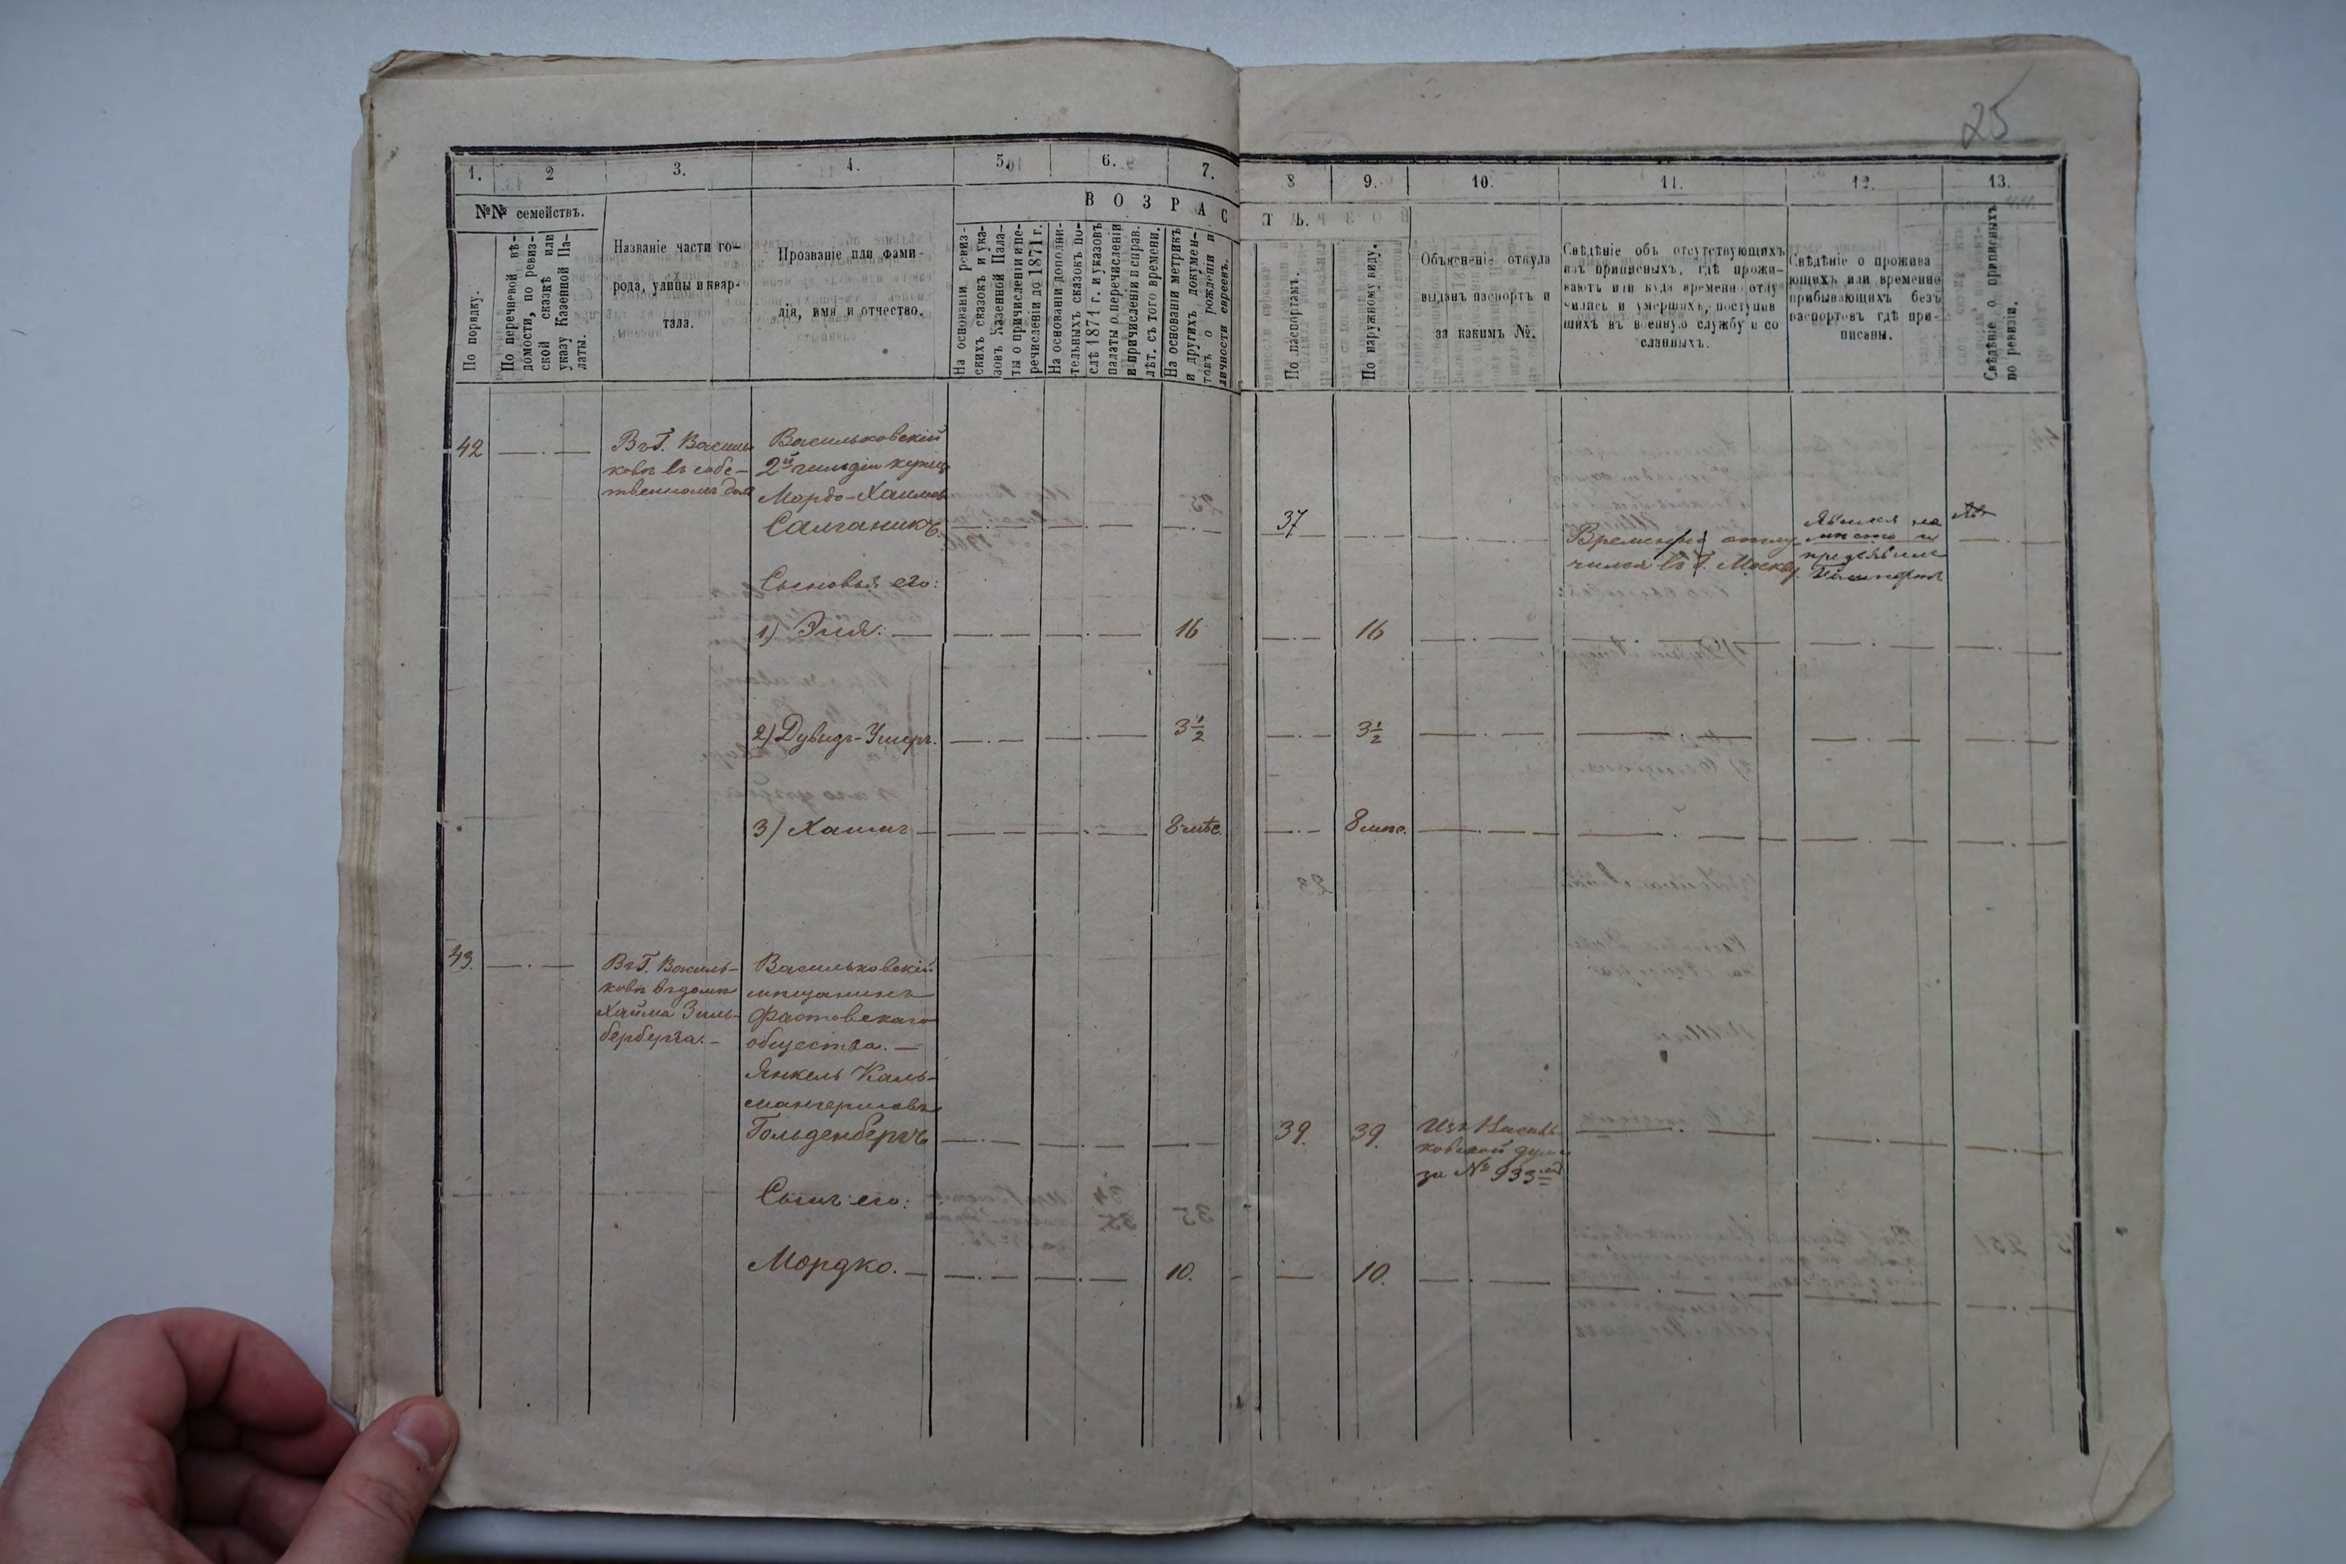 25
1.
2
3.
4.
5.
6.
7.
8
9.
10.
11.
12.
13.
№№ семействъ.
В О З Р А С
Т Ъ.
По порядку.
По перечневой вѣ-
домости, по ревиз-
ской сказкѣ или
указу Казенной Па-
латы.
Названіе части го-
рода, улицы и квар-
тала.
Прозваніе или фами-
лія, имя и отчество.
На основаніи ревиз-
скихъ сказокъ и ука-
зовъ Казенной Пала-
ты о причисленіи и пе-
речисленіи до 1871 г.
На основаніи дополни-
тельныхъ сказокъ по-
слѣ 1871 г. и указовъ
палаты о перечисленіи
и причисленіи и справ.
лѣт. съ того времени.
На основаніи метрикъ
и другихъ докумен-
товъ о рожденіи и
личности евреевъ.
По паспортамъ.
По наружному виду.
Объясненіе откуда
выданъ паспортъ и
за какимъ №.
Свѣдѣніе объ отсутствующихъ
изъ приписныхъ, гдѣ прожи-
ваютъ или куда временно отлу
чились и умершихъ, поступив
шихъ въ военную службу и со
сланныхъ.
Свѣдѣніе о прожива
ющихъ или временно
прибывающихъ безъ
паспортовъ гдѣ при-
писаны.
Свѣдѣніе о приписныхъ
по ревизіи.
42
Въ Г. Василь
ковѣ въ собс-
твенномъ домѣ
Васильковскій
2й гильдіи купецъ
Мордо-Хаимовъ
Салганикъ.
37
Временно отлу
чился въ Г. Москву.
Явился на
мѣсто и
предъявилъ
Сыновья его:
1) Эля.
16
16
2) Дувидъ-Ушеръ.
3½
3½
3) Хаимъ
8 мѣс.
8 мѣс.
43.
Въ Г. Василь-
ковѣ въ домѣ
Хаима Зиль-
берберга.
Васильковскій
мѣщанинъ
Фастовскаго
общества.
Янкель Каль-
мангершовъ
Гольденбергъ
39.
39.
Изъ Василь-
ковской думы
за № 933
Сынъ его:
Мордко.
10.
10.